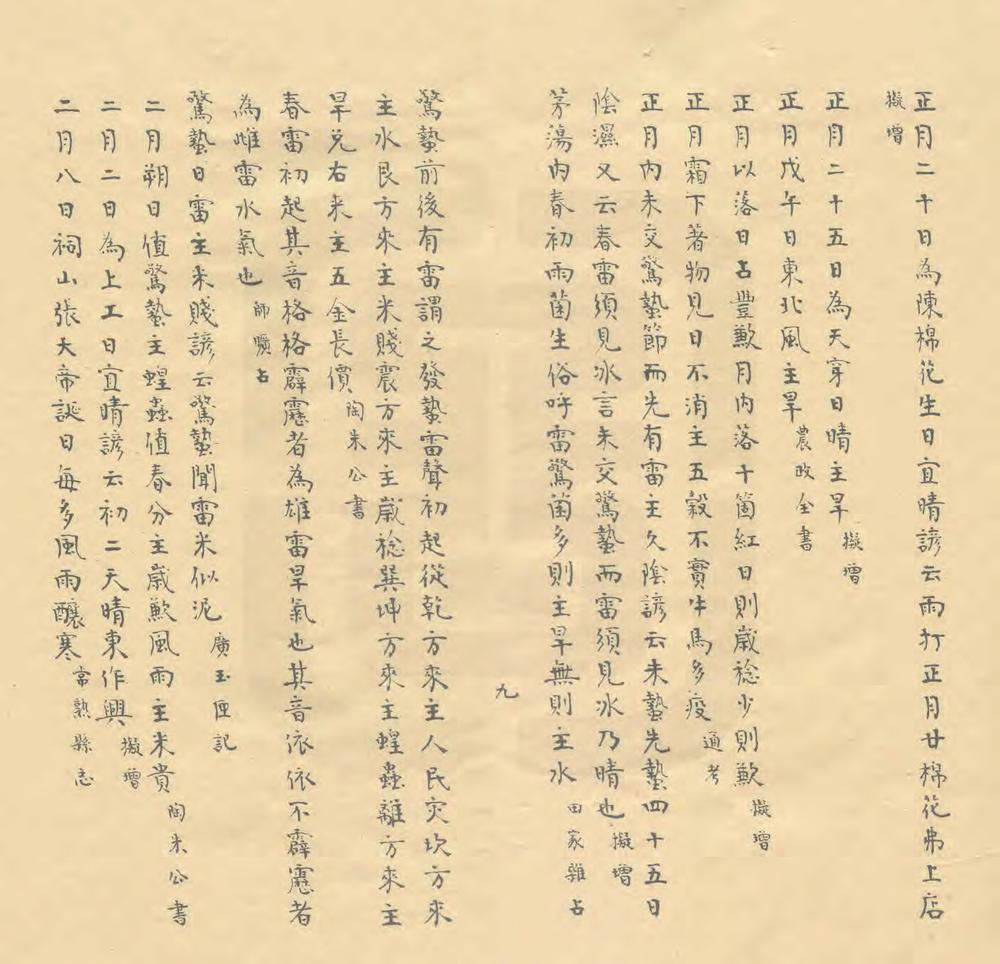 正月二十日為陳棉花生日宜晴諺云雨打正月廿棉花弗上店
擬增
正月二十五日為天穿日晴主旱 擬增
正月戊午日東北風主旱 農政全書
正月以落日占豐歉月內落十箇紅日則歲稔少則歉 擬增
正月霜下著物見日不消主五穀不實牛馬多疫 通考
正月內未交驚蟄節而先有雷主久陰諺云未蟄先蟄四十五日
陰濕又云春雷須見冰言未交驚蟄而雷須見冰乃晴也 擬增
茅蕩內春初雨菌生俗呼雷驚菌多則主旱無則主水 田家雜占
九
驚蟄前後有雷謂之發蟄雷聲初起從乾方來主人民灾坎方來
主水艮方來主米賤震方來主歲稔巽坤方來主蝗蟲離方來主
旱兌右來主五金長價 陶朱公書
春雷初起其音格格霹靂者為雄雷旱氣也其音依依不霹靂者
為雌雷水氣也 師曠占
驚蟄日雷主米賤諺云驚蟄聞雷米似泥 廣玉匣記
二月朔日值驚蟄主蝗蟲值春分主歲歉風雨主米貴 陶米公書
二月二日為上工日宜晴諺云初二天晴東作興 擬增
二月八日祠山張大帝誕日每多風雨釀寒 常熟縣志